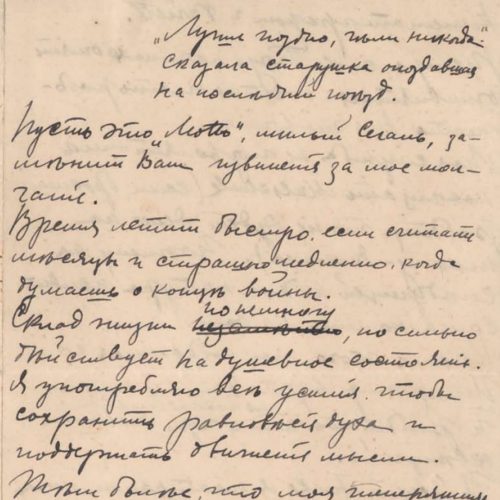 „Лучше поздно, чѣмъ никогда"
сказала старушка опоздавшая
на послѣдній поѣздъ.
Пусть это „Motto", милый Сегаль, за-
мѣнитъ Вамъ за мое мол-
чаніе.
Время летитъ быстро, если считать
мѣсяцы и страшно медленно, когда
думаешь о концѣ войны.
Складъ жизни понемногу незамѣтно, но сильно
дѣйствуетъ на душевное состояніе.
Я употребляю всѣ усилія, чтобы
сохранить равновѣсіе духа и
поддержать движеніе мысли.
что моя